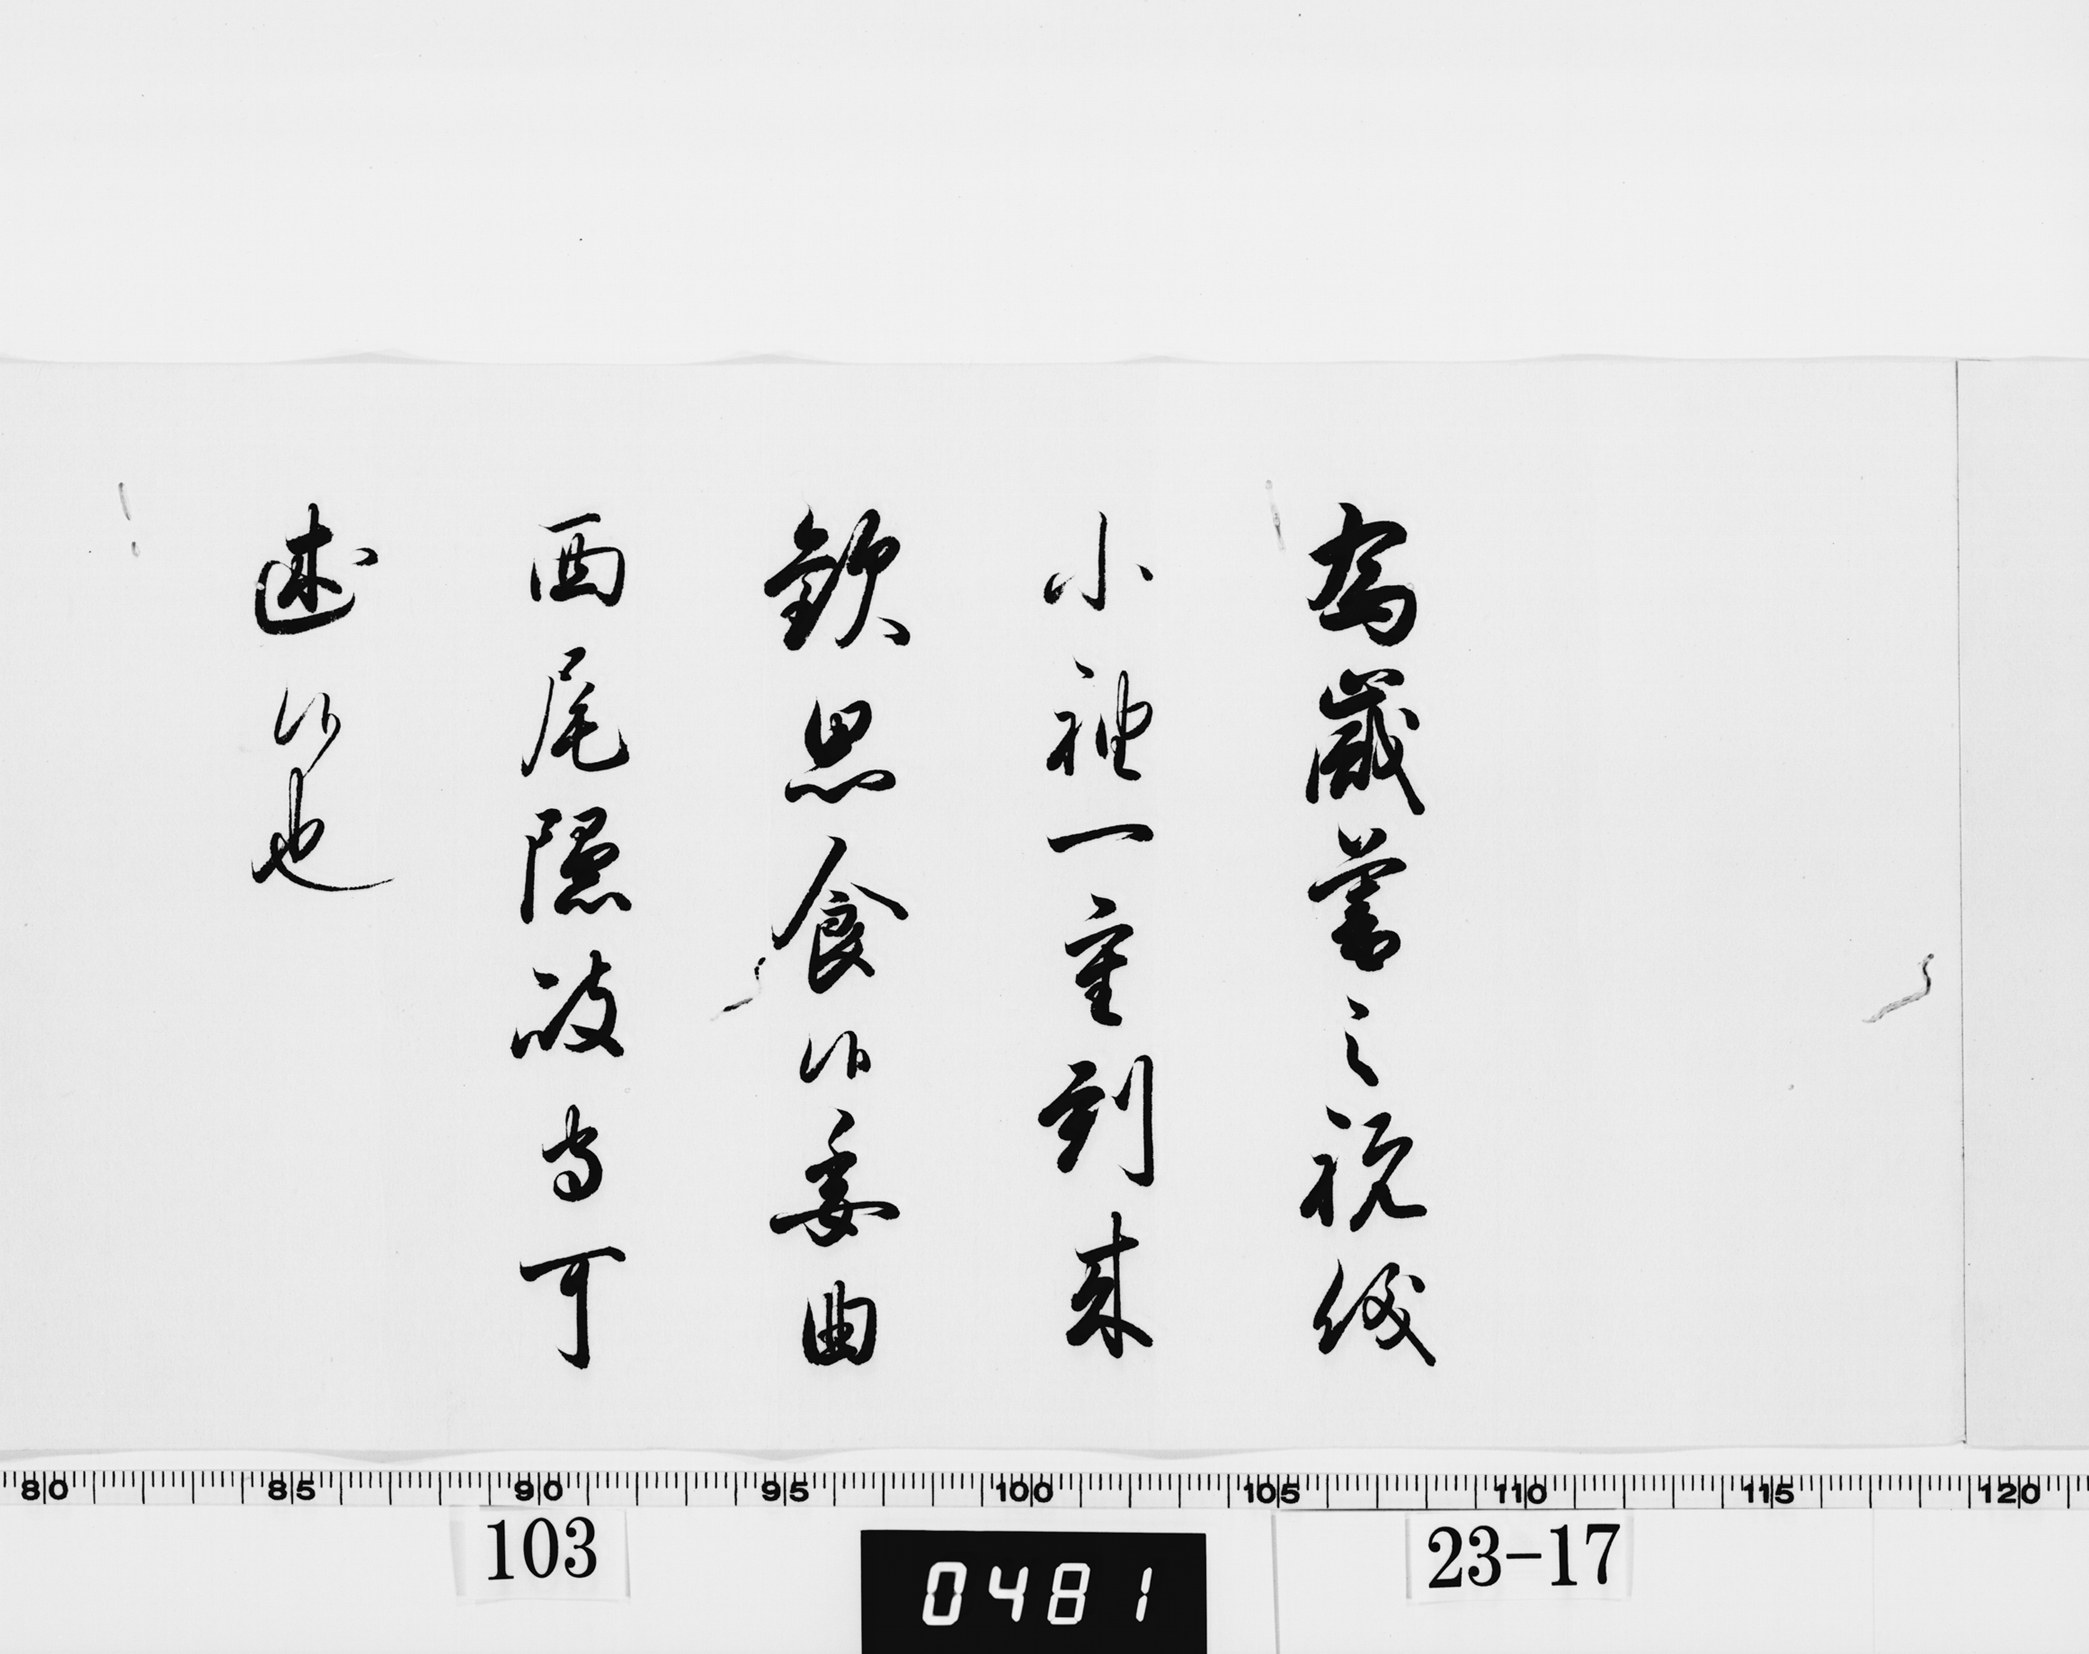 為歳暮之祝儀
小袖一重到来
欽思食候委曲
西尾隠岐守可
述候也
80 85 90 95 100 105 110 115 120
103
0481
23-17